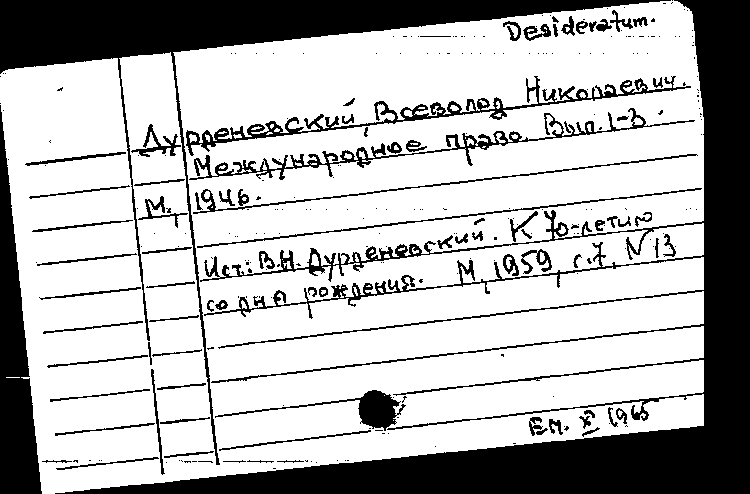 Desideratum.
Дурденевский, Всеволод Николаевич.
Международное право. Вып. 1-3.
М., 1946.
Ист.: В.Н. Дурденевский. К 70-летию
со дня рождения. М., 1959, с.7, N 13
Ем. XI 1965